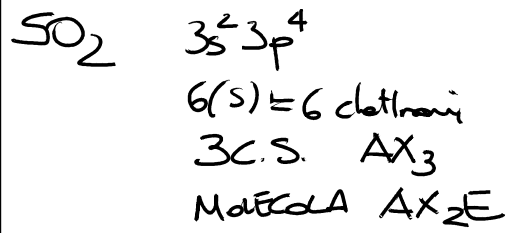 SO₂ 3s²3p⁴
6(S) = 6 elettroni
3 C.S. AX₃
MOLECOLA AX₂E